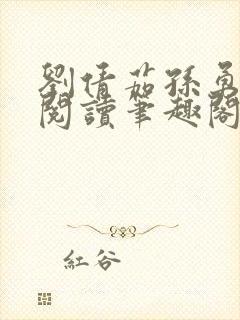 劉倩茹孫勇
閱讀筆趣閣
紅谷